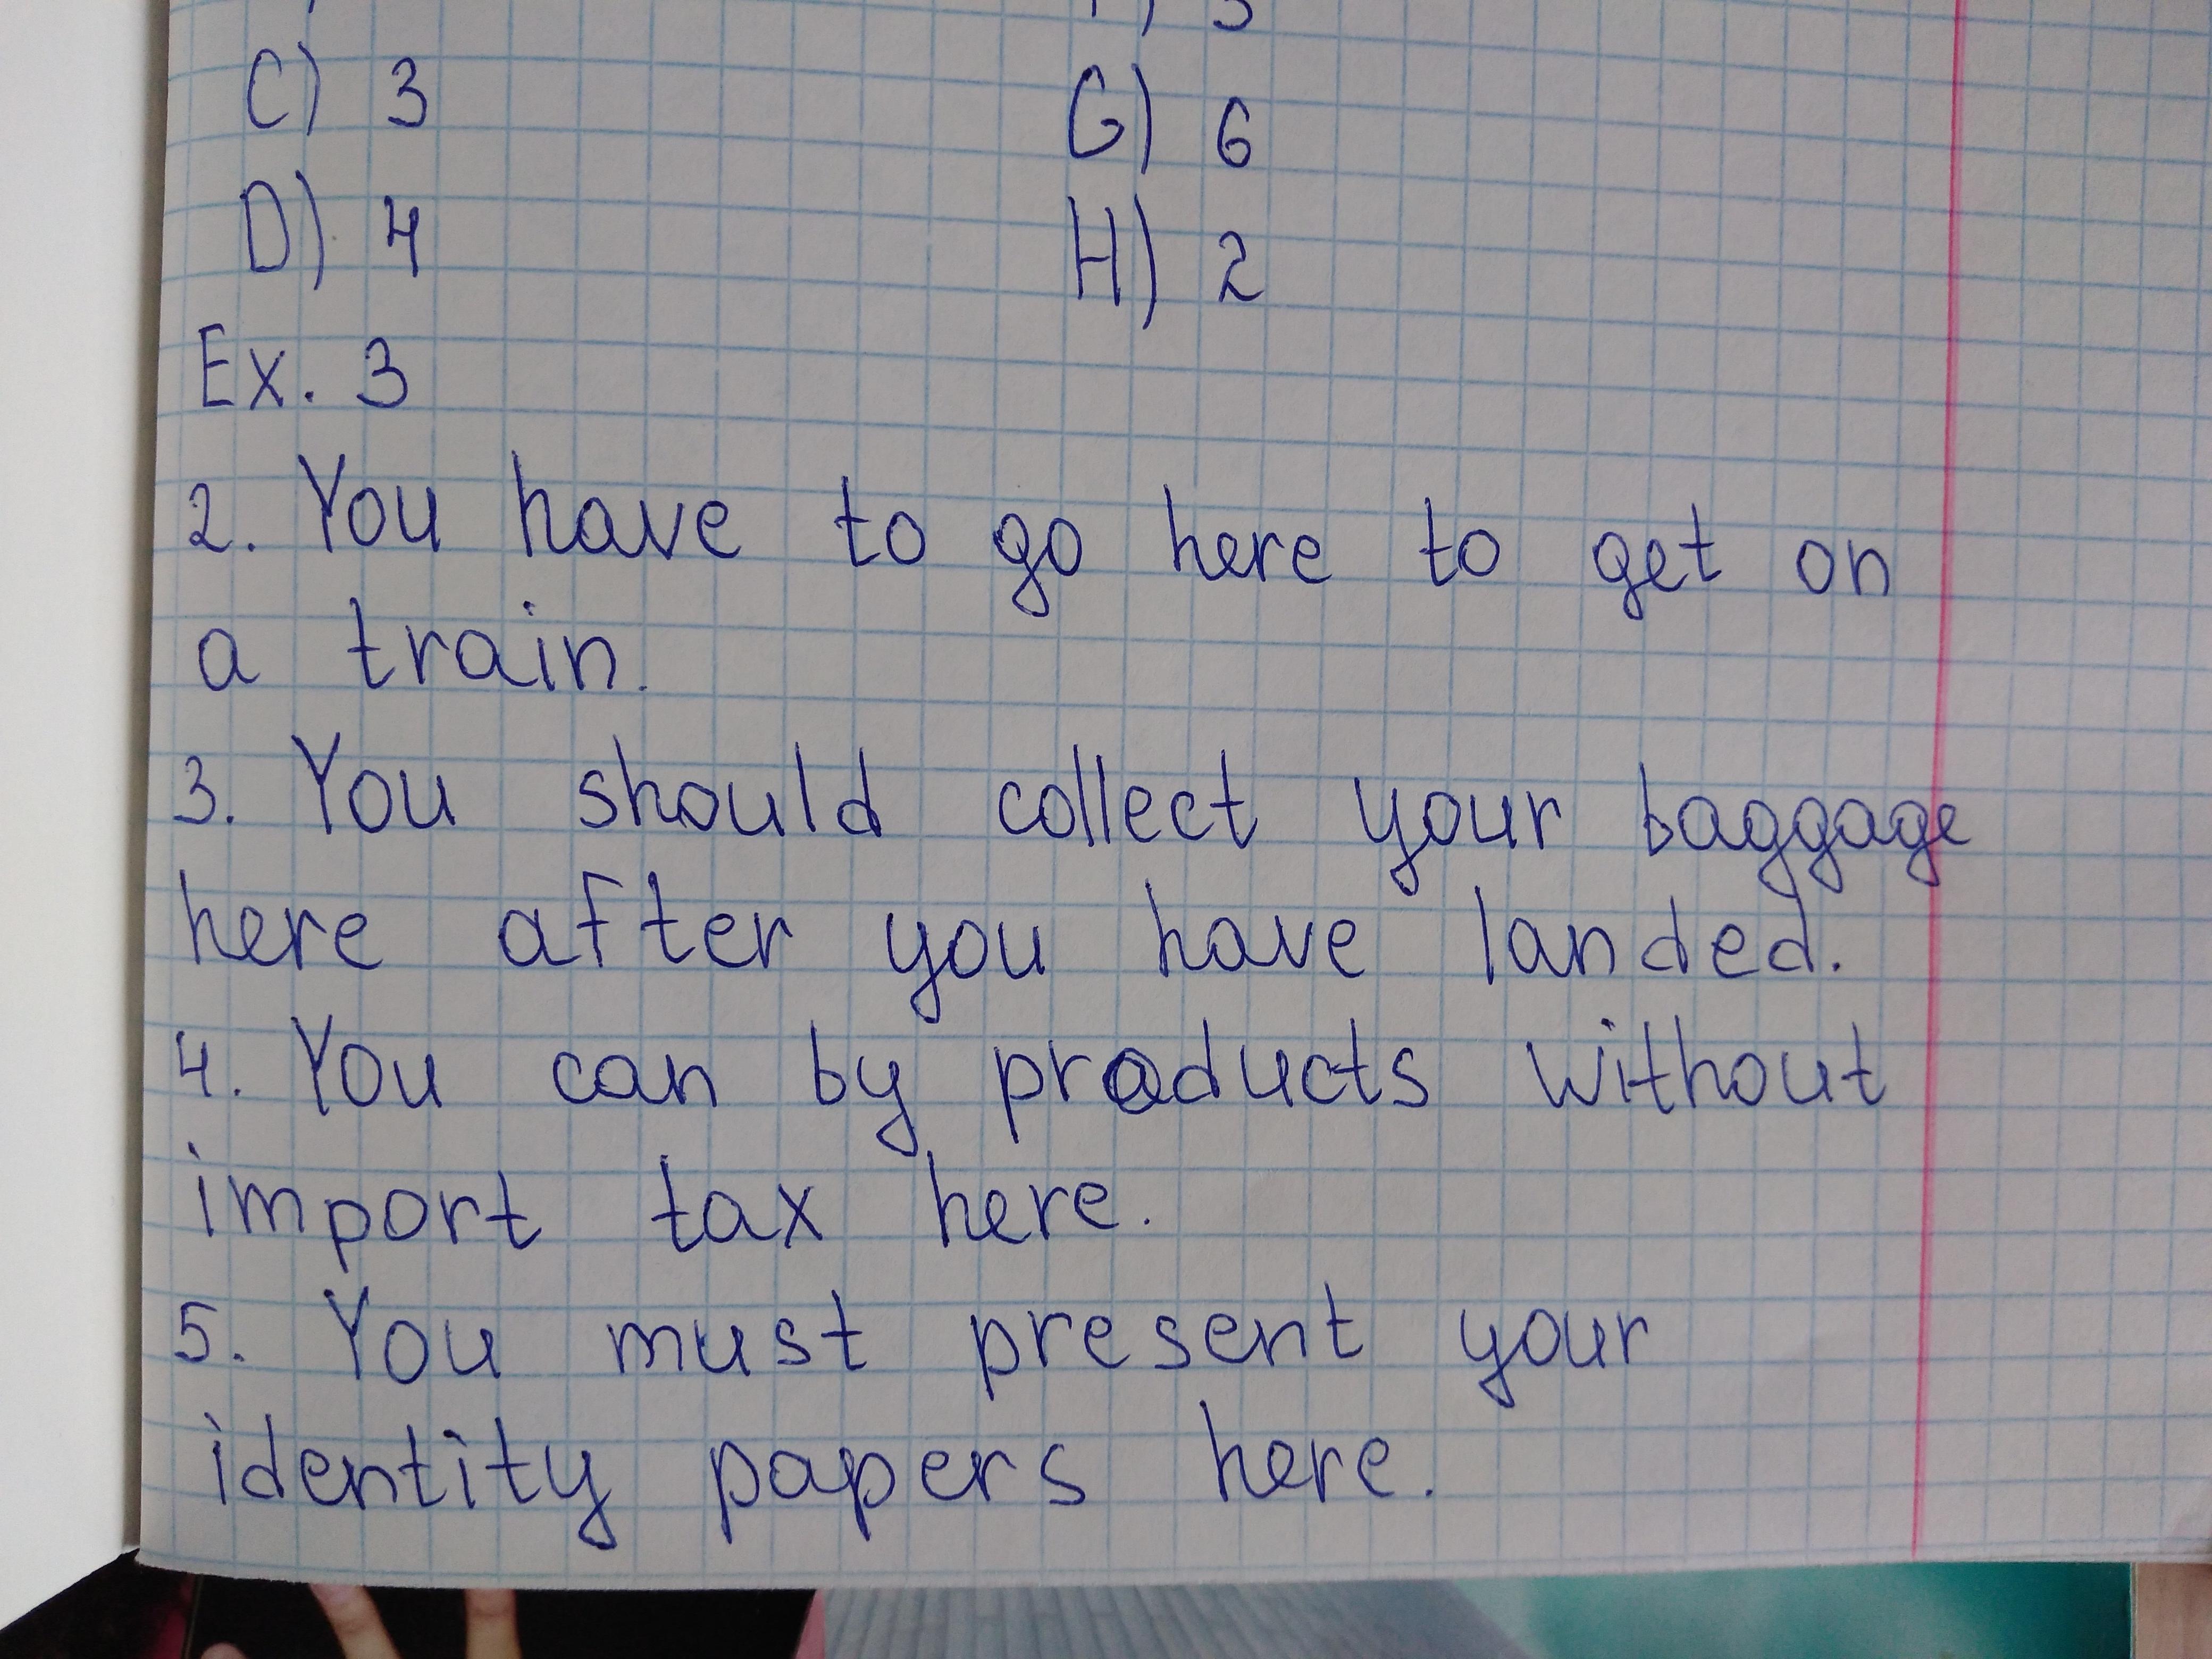 C) 3 G) 6
D) 4 H) 2
Ex. 3
2. You have to go here to get on
a train.
3. You should collect your baggage
here after you have landed.
4. You can by products without
import tax here.
5. You must present your
identity papers here.